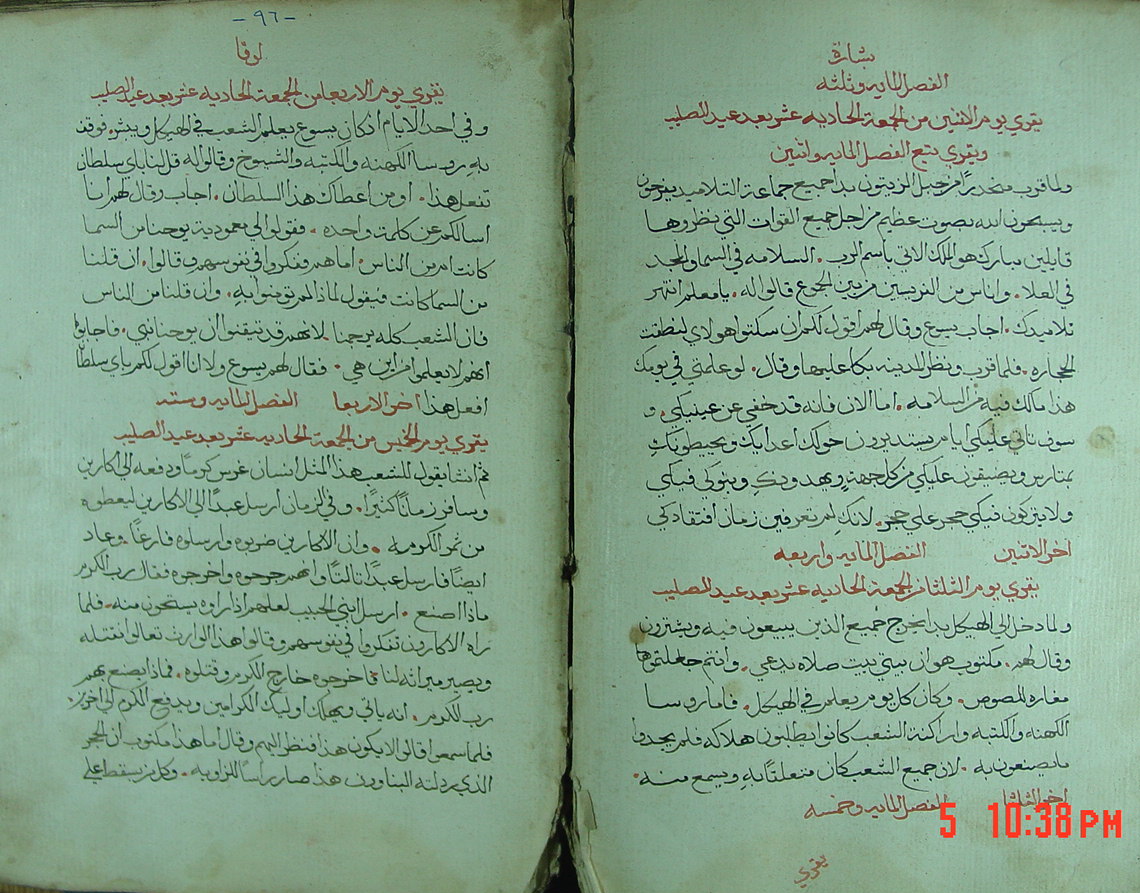 بشارة
الفصل المايه وثلثه
يقري يوم الاثنين من الجمعة الحاديه عشر بعد عيد الصليب
ويقري يتبع الفصل المايه واثنين
ولما قرب منحدرًا من جبل الزيتون بدا جميع جماعة التلاميد يفرحون
ويسبحون الله بصوت عظيم من اجل جميع القوات التي نظروها
قايلين مبارك هو الملك الاتي باسم الرب. السلامه في السما والمجد
في العلا. واناس من الفريسين من بين الجموع قالوا له. يا معلم انتهر
تلاميدك. اجاب يسوع وقال لهم اقول لكم ان سكتوا هولاي لنطقت
الحجاره. فلما قرب ونظر المدينه بكا عليها وقال. لو علمتي في يومك
هذا ما لك فيه من السلامه. اما الان فانه قد خفي عن عينيكي. و
سوف تاتي عليكي ايام يستديرون حولك اعدايك ويحيطونك
بمتارس ويضيقون عليكي من كل جهة ويهدونك وبنوكي فيكي
ولا يتركون فيكي حجر علي حجر. لانك لم تعرفين زمان افتقادكي
اخر الاتنين الفصل المايه واربعه
يقري يوم الثلثا من الجمعة الحاديه عشر بعد عيد الصليب
ولما دخل الي الهيكل بدا يخرج جميع الذين يبيعون فيه ويشترون
وقال لهم. مكتوب هو ان بيتي بيت صلاه يدعي. وانتم جعلتموها
مغاره للصوص. وكان كل يوم يعلم في الهيكل. فاما روسا
الكهنه والكتبه واراكنة الشعب كانوا يطلبون هلاكه فلم يجدوا
ما يصنعون به. لان جميع الشعب كان متعلقًا به ويسمع منه.
اخر الثلثا الفصل المايه وخمسه
يقري
5 10:38 PM
-٩٦-
لوقا
يقري يوم الاربعا من الجمعة الحاديه عشر بعد عيد الصليب
وفي احد الايام اذ كان يسوع يعلم الشعب في الهيكل ويبشر. فوقف
به روسا الكهنه والكتبه والشيوخ وقالوا له قل لنا باي سلطان
تفعل هذا. او من اعطاك هذا السلطان. اجاب وقال لهم انا
اسالكم عن كلمت واحده. فقولوا لي معمودية يوحنا من السما
كانت ام من الناس. اما هم ففكروا في نفوسهم وقالوا. ان قلنا
من السما كانت فيقول لماذا لم تومنوا به. وان قلنا من الناس
فان الشعب كله يرجمنا لانهم قد تيقنوا ان يوحنا نبي. فاجابوا
انهم لا يعلموا من اين هي. فقال لهم يسوع ولا انا اقول لكم باي سلطان
افعل هذا اخر الاربعا الفصل المايه وسته
يقري يوم الخميس من الجمعة الحاديه عشر بعد عيد الصليب
ثم انشا يقول للشعب هذا المثل انسان غرس كرمًا ودفعه الي اكارين
وسافر زمانًا كثيرًا. وفي الزمان ارسل عبدًا الي الاكارين ليعطوه
من ثمر الكرم. وان الاكارين ضربوه وارسلوه فارغًا. وعاد
ايضًا فارسل عبدًا ثالثًا وانهم جرحوه واخرجوه فقال رب الكرم
ماذا اصنع. ارسل ابني الحبيب لعلهم اذا راوه يستحون منه. فلما
راه الاكارين تفكروا في نفوسهم وقالوا هذا الوارث تعالوا نقتله
ويصير ميراثه لنا فاخرجوه خارج الكرم وقتلوه. فماذا يصنع بهم
رب الكرم. انه ياتي ويهلك اوليك الكرامين ويدفع الكرم الي اخرين.
فلما سمعوا قالوا لا يكون هذا فنظر اليهم وقال اما هذا مكتوب ان الحجر
الذي رذلته البناوون هذا صار راسًا للزاويه. وكل من يسقط علي